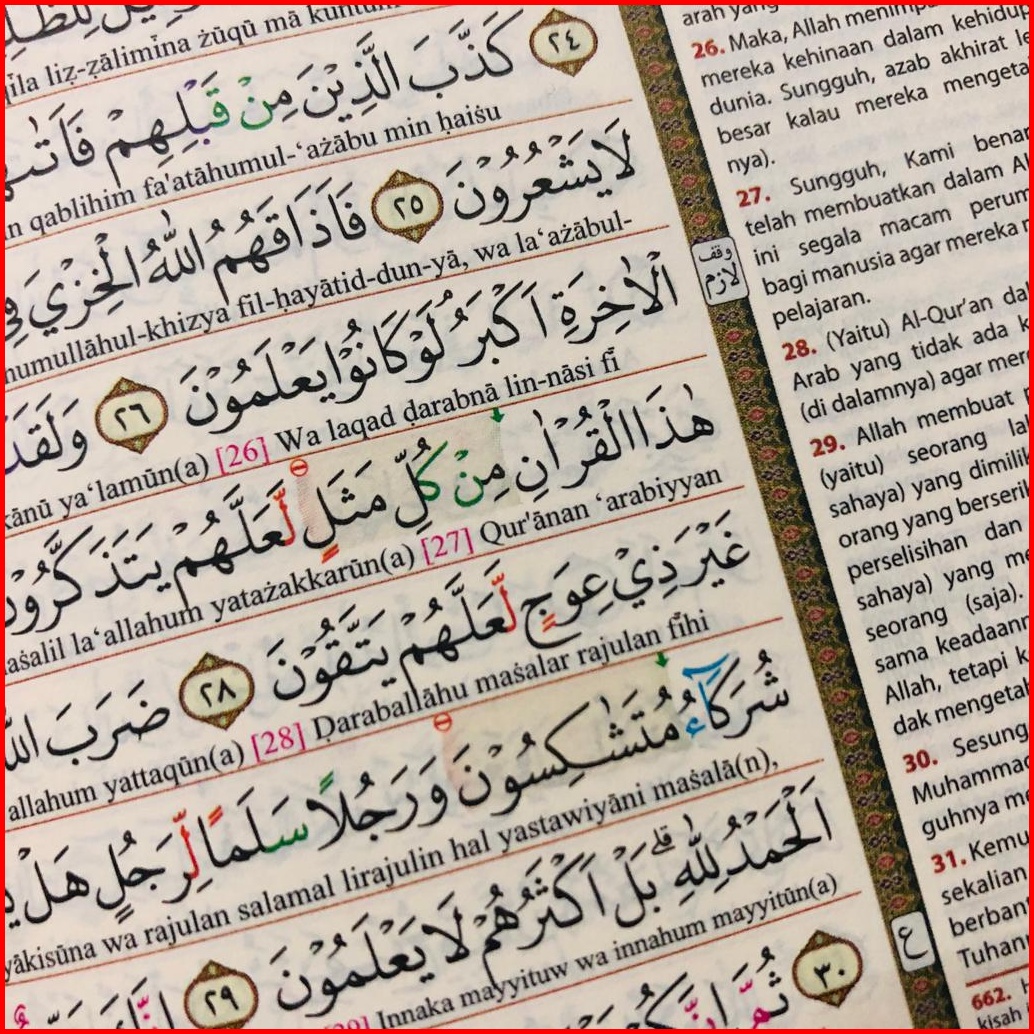 ila liẓ-ẓālimīna żūqū mā kuntum
كَذَّبَ الَّذِيْنَ مِنْ قَبْلِهِمْ ٢٤
qablihim fa'atāhumul-‘ażābu min ḥaiṡu
لَا يَشْعُرُوْنَ ٢٥ فَاَذَاقَهُمُ اللّٰهُ الْخِزْيَ
humullāhul-khizya fil-ḥayātid-dun-yā, wa la‘ażābul-
الْاٰخِرَةِ اَكْبَرُ لَوْ كَانُوْا يَعْلَمُوْنَ ٢٦ وَلَقَدْ
kānū ya‘lamūn(a) [26] Wa laqad ḍarabnā lin-nāsi fī
هٰذَا الْقُرْاٰنِ مِنْ كُلِّ مَثَلٍ لَّعَلَّهُمْ يَتَذَكَّرُوْنَ
maṡalil la‘allahum yatażakkarūn(a) [27] Qur'ānan ‘arabiyyan
غَيْرَ ذِيْ عِوَجٍ لَّعَلَّهُمْ يَتَّقُوْنَ ٢٨ ضَرَبَ اللّٰهُ
allahum yattaqūn(a) [28] Ḍaraballāhu maṡalar rajulan fīhi
شُرَكَاۤءُ مُتَشٰكِسُوْنَ وَرَجُلًا سَلَمًا لِّرَجُلٍ هَلْ
yākisūna wa rajulan salamal lirajulin hal yastawiyāni maṡalā(n),
اَلْحَمْدُ لِلّٰهِ ۗ بَلْ اَكْثَرُهُمْ لَا يَعْلَمُوْنَ ٢٩
[29] Innaka mayyituw wa innahum mayyitūn(a)
٣٠ ثُمَّ اِنَّكُمْ
وقف لازم
ع
arah yang
26. Maka, Allah menimpa
mereka kehinaan dalam kehidup
dunia. Sungguh, azab akhirat le
besar kalau mereka mengeta
nya).
27. Sungguh, Kami benar
telah membuatkan dalam Al
ini segala macam perum
bagi manusia agar mereka
pelajaran.
28. (Yaitu) Al-Qur'an da
Arab yang tidak ada k
(di dalamnya) agar mer
29. Allah membuat
(yaitu) seorang la
sahaya) yang dimilik
orang yang berseri
perselisihan dan
sahaya) yang me
seorang (saja).
sama keadaann
Allah, tetapi k
dak mengetah
30. Sesung
Muhammad
guhnya me
31. Kemu
sekalian
berban
Tuhan
662.
kisah